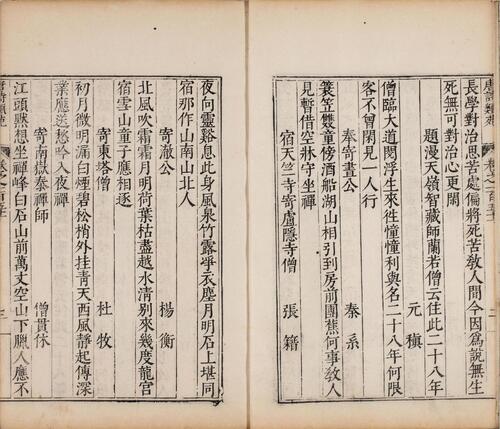 長學對治思苦處偏將死苦敎人間今因為說無生
死無可對治心更閑
題漫天嶺智藏師蘭若僧云住此二十八年
元稹
僧臨大道閱浮生來往憧憧利與名二十八年何限
客不曾閑見一人行
奉寄晝公
秦系
蓑笠雙童傍酒船湖山相引到房前團蕉何事敎人
見暫借空牀守坐禪
宿天竺寺寄靈隱寺僧
張籍
夜向靈谿息此身風泉竹露凈衣塵月明石上堪同
宿那作山南山北人
寄澈公
楊衡
北風吹霜霜月明荷葉枯盡越水清別來幾度龍宮
宿雪山童子應相逐
寄東塔僧
杜牧
初月微明漏白煙碧松梢外挂青天西風靜起傳深
業應送愁吟入夜禪
寄南嶽泰禪師
僧貫休
江頭黙想坐禪峰白石山前萬丈空山下臘人應不